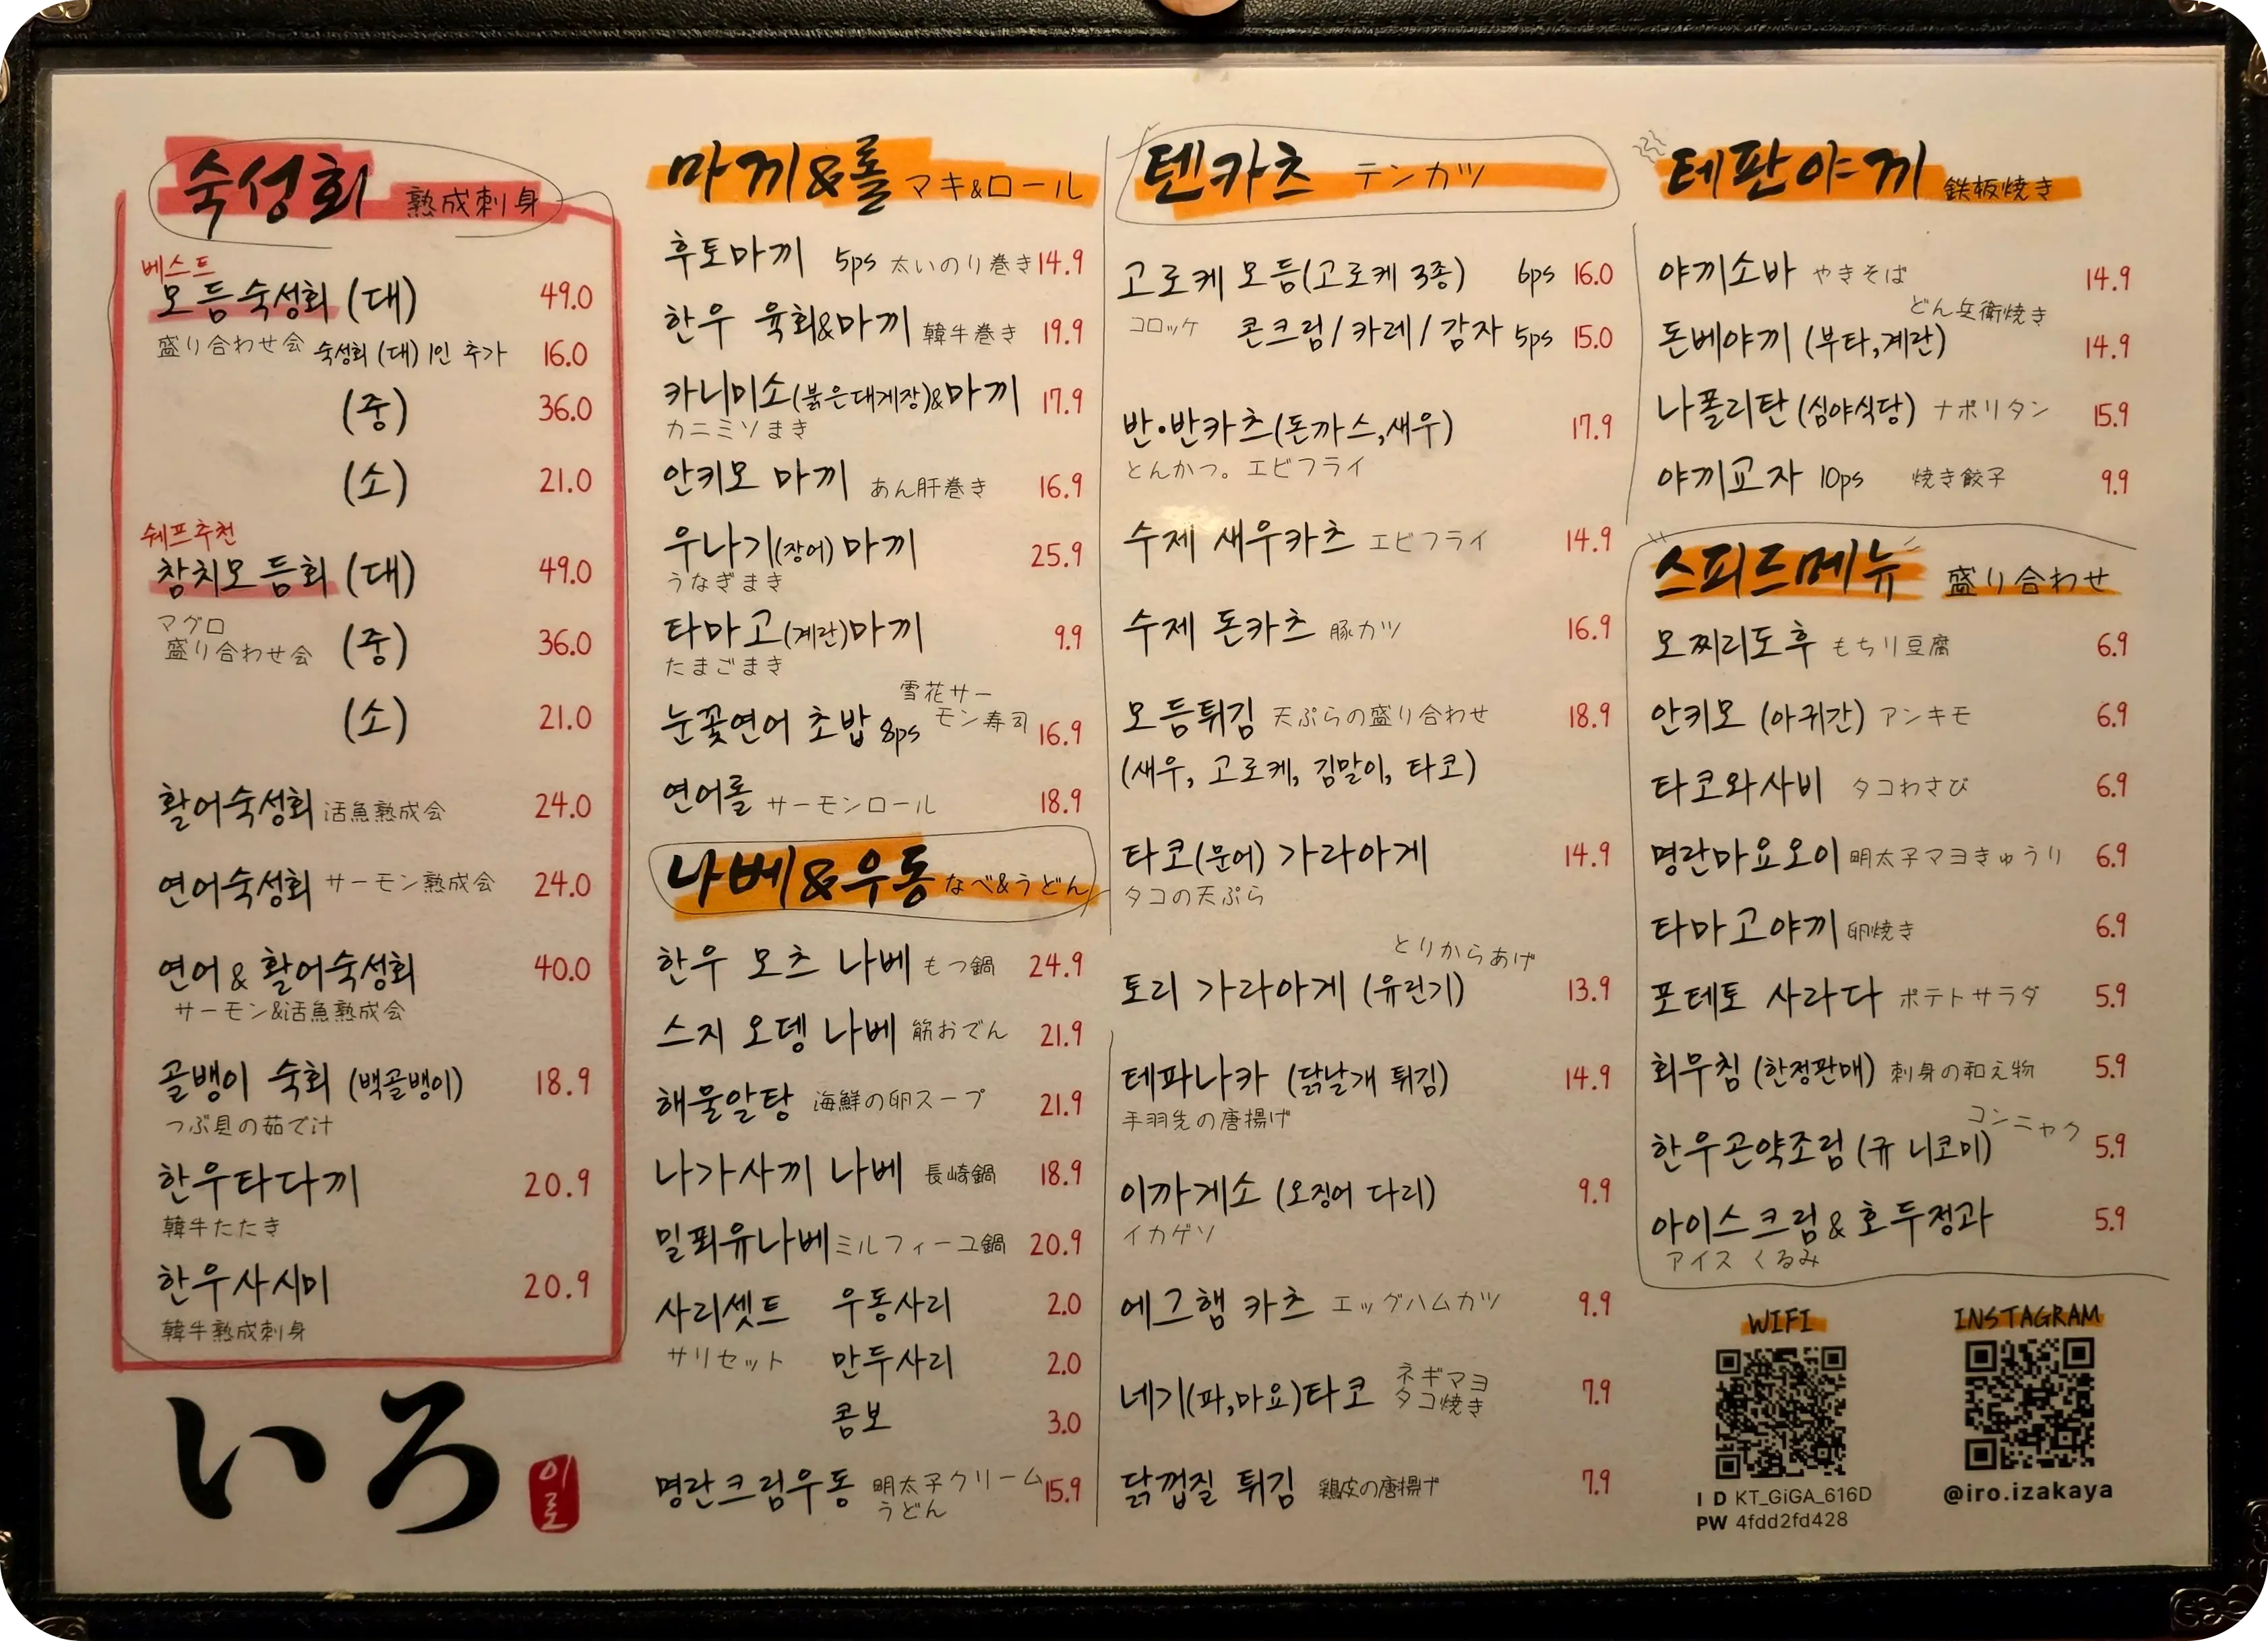 숙성회 熟成刺身
베스트
모듬숙성회 (대) 49.0
盛り合わせ会 숙성회 (대) 1인 추가 16.0
(중) 36.0
(소) 21.0
쉐프추천
참치모듬회 (대) 49.0
マグロ
盛り合わせ会 (중) 36.0
(소) 21.0
활어숙성회 活魚熟成会 24.0
연어숙성회 サーモン熟成会 24.0
연어 & 활어숙성회 40.0
サーモン&活魚熟成会
골뱅이 숙회 (백골뱅이) 18.9
つぶ貝の茹で汁
한우타다끼 20.9
韓牛たたき
한우사시미 20.9
韓牛熟成刺身
いろ
이로
마끼&롤 マキ&ロール
후토마끼 5ps 太いのり巻き 14.9
한우 육회&마끼 韓牛巻き 19.9
카니미소(붉은대게장)&마끼 17.9
カニミソまき
안키모 마끼 あん肝巻き 16.9
우나기(장어)마끼 25.9
うなぎまき
타마고(계란)마끼 9.9
たまごまき
눈꽃연어 초밥 8ps 雪花サー
モン寿司 16.9
연어롤 サーモンロール 18.9
나베&우동 なべ&うどん
한우 모츠 나베 もつ鍋 24.9
스지 오뎅 나베 筋おでん 21.9
해물알탕 海鮮の卵スープ 21.9
나가사끼 나베 長崎鍋 18.9
밀푀유나베 ミルフィーユ鍋 20.9
사리셋트 우동사리 2.0
サリセット 만두사리 2.0
콤보 3.0
명란크림우동 明太子クリーム 15.9
うどん
텐카츠 テンカツ
고로케 모듬(고로케 3종) 6ps 16.0
コロッケ 콘크림/카레/감자 5ps 15.0
반•반카츠(돈까스,새우) 17.9
とんかつ。エビフライ
수제 새우카츠 エビフライ 14.9
수제 돈카츠 豚カツ 16.9
모듬튀김 天ぷらの盛り合わせ 18.9
(새우, 고로케, 김말이, 타코)
타코(문어) 가라아게 14.9
タコの天ぷら
とりからあげ
토리 가라아게 (유린기) 13.9
테파나카 (닭날개 튀김) 14.9
手羽先の唐揚げ
이까게소 (오징어 다리) 9.9
イカゲソ
에그햄 카츠 エッグハムカツ 9.9
네기(파,마요)타코 ネギマヨ
タコ焼き 7.9
닭껍질 튀김 鶏皮の唐揚げ 7.9
테판야끼 鉄板焼き
야끼소바 やきそば 14.9
どん兵衛焼き
돈베야끼 (부타,계란) 14.9
나폴리탄 (심야식당) ナポリタン 15.9
야끼교자 10ps 焼き餃子 9.9
스피드메뉴 盛り合わせ
모찌리도후 もちり豆腐 6.9
안키모 (아귀간) アンキモ 6.9
타코와사비 タコわさび 6.9
명란마요오이 明太子マヨきゅうり 6.9
타마고야끼 卵焼き 6.9
포테토 사라다 ポテトサラダ 5.9
회무침 (한정판매) 刺身の和え物 5.9
コンニャク
한우곤약조림 (규 니코미) 5.9
아이스크림 & 호두정과 5.9
アイス くるみ
WIFI
ID KT_GiGA_616D
PW 4fdd2fd428
INSTAGRAM
@iro.izakaya